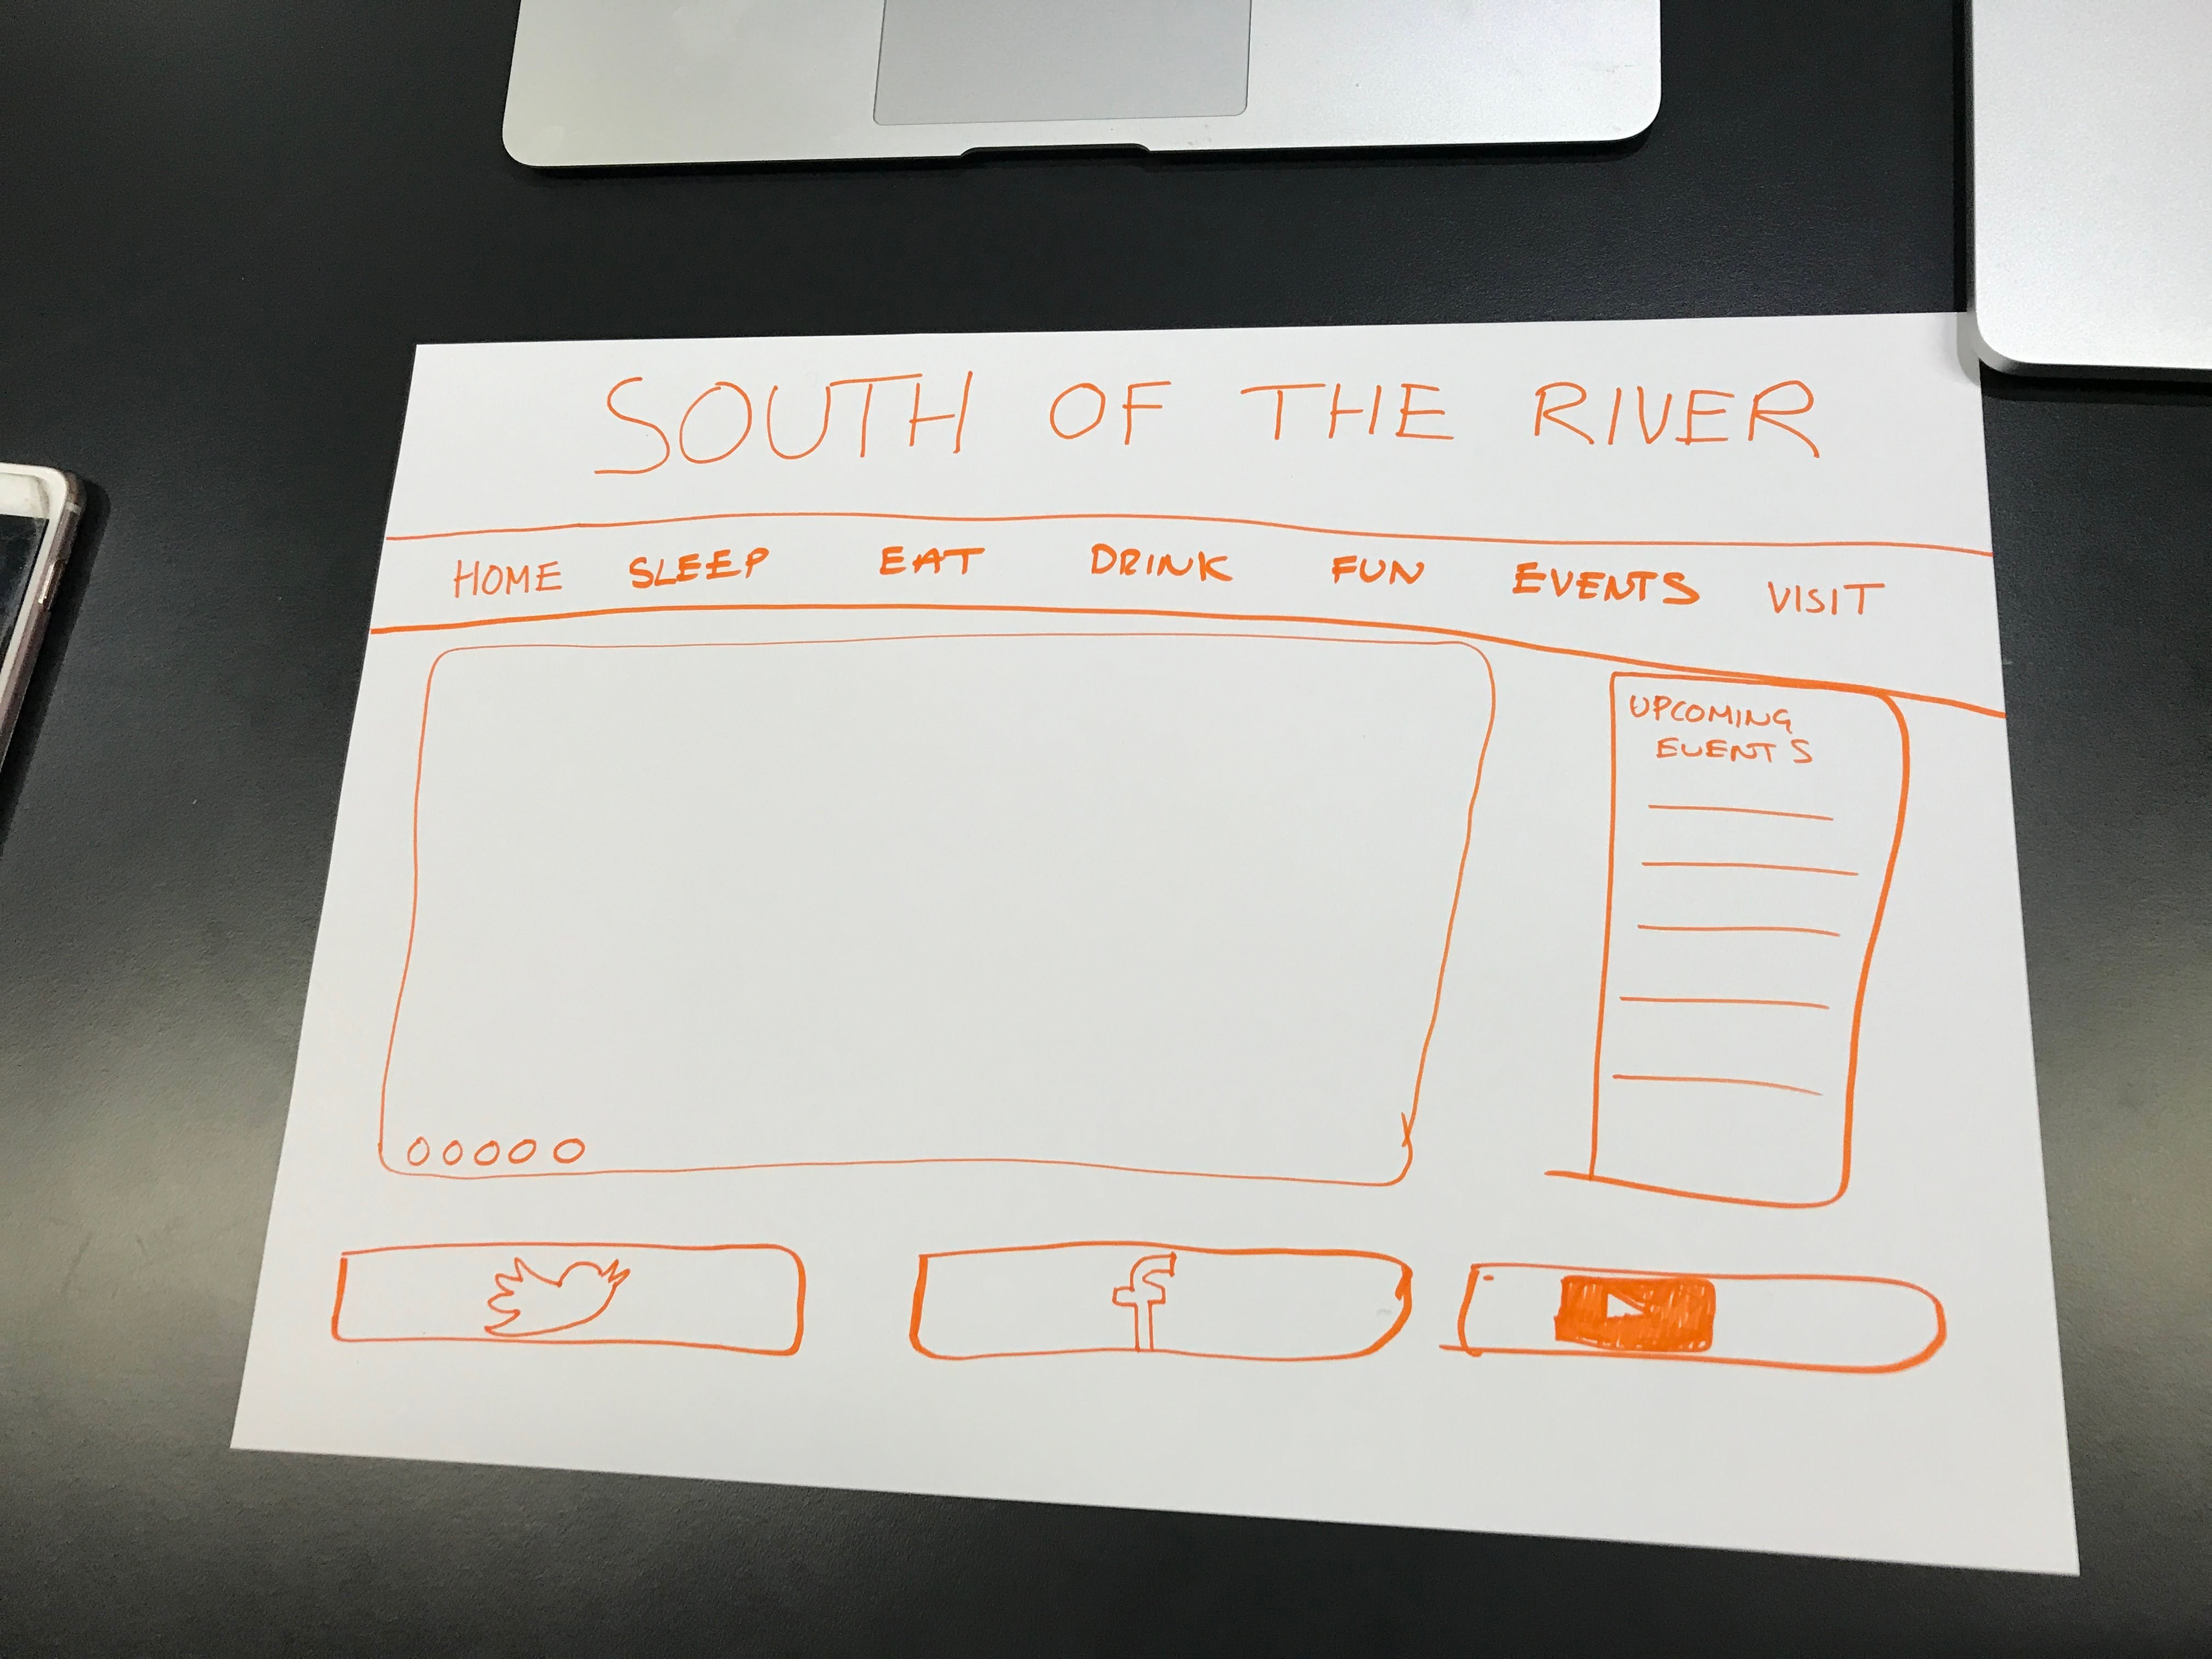 SOUTH OF THE RIVER
HOME SLEEP EAT DRINK FUN EVENTS VISIT
UPCOMING
EVENTS